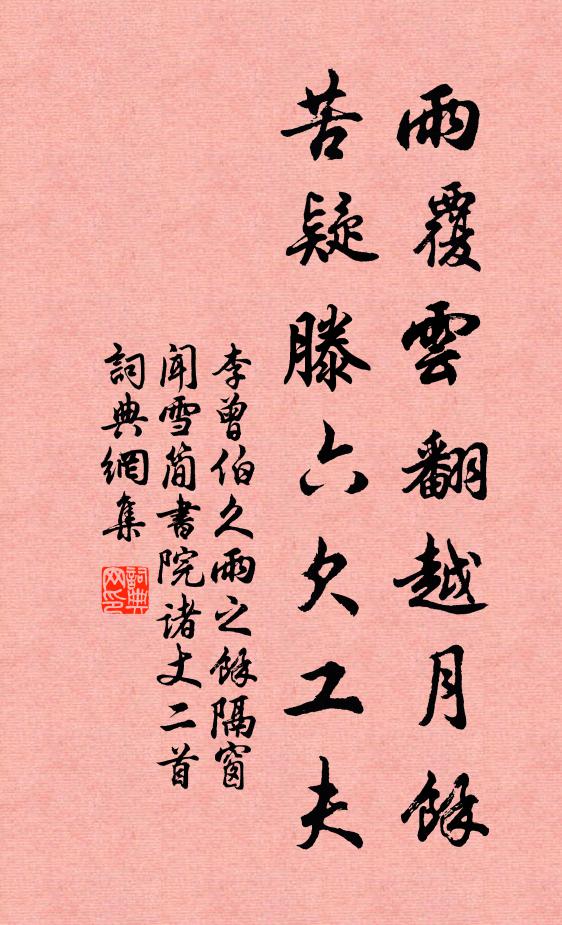 雨覆雲翻越月餘
苦疑滕六欠工夫
李曾伯久雨之餘隔窗
聞雪簡書院諸丈二首
詞典網集
詞典
网印